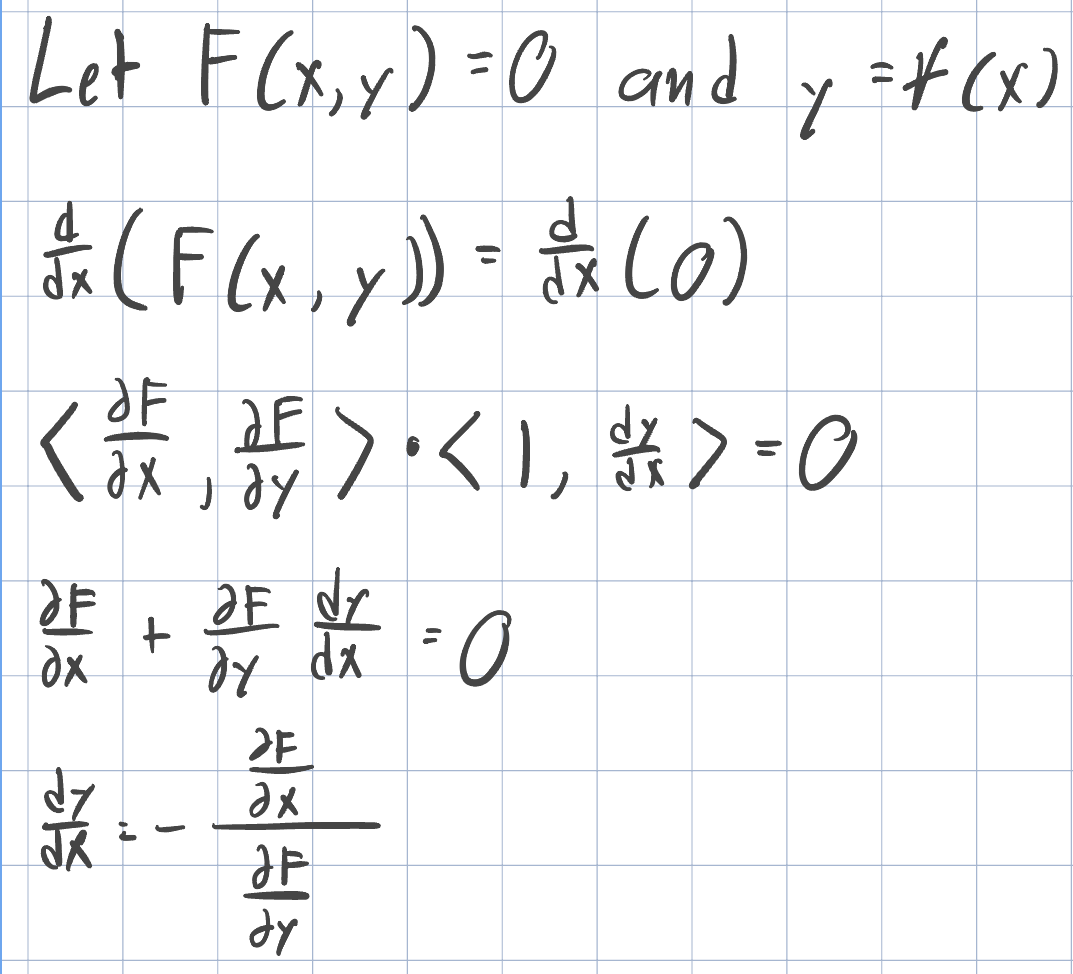 Let F(x,y)=0 and y=f(x)
d/dx(F(x,y))=d/dx(0)
<∂F/∂x,∂F/∂y>•<1,dy/dx>=0
∂F/∂x+∂F/∂y dy/dx=0
dy/dx=-(∂F/∂x)/(∂F/∂y)